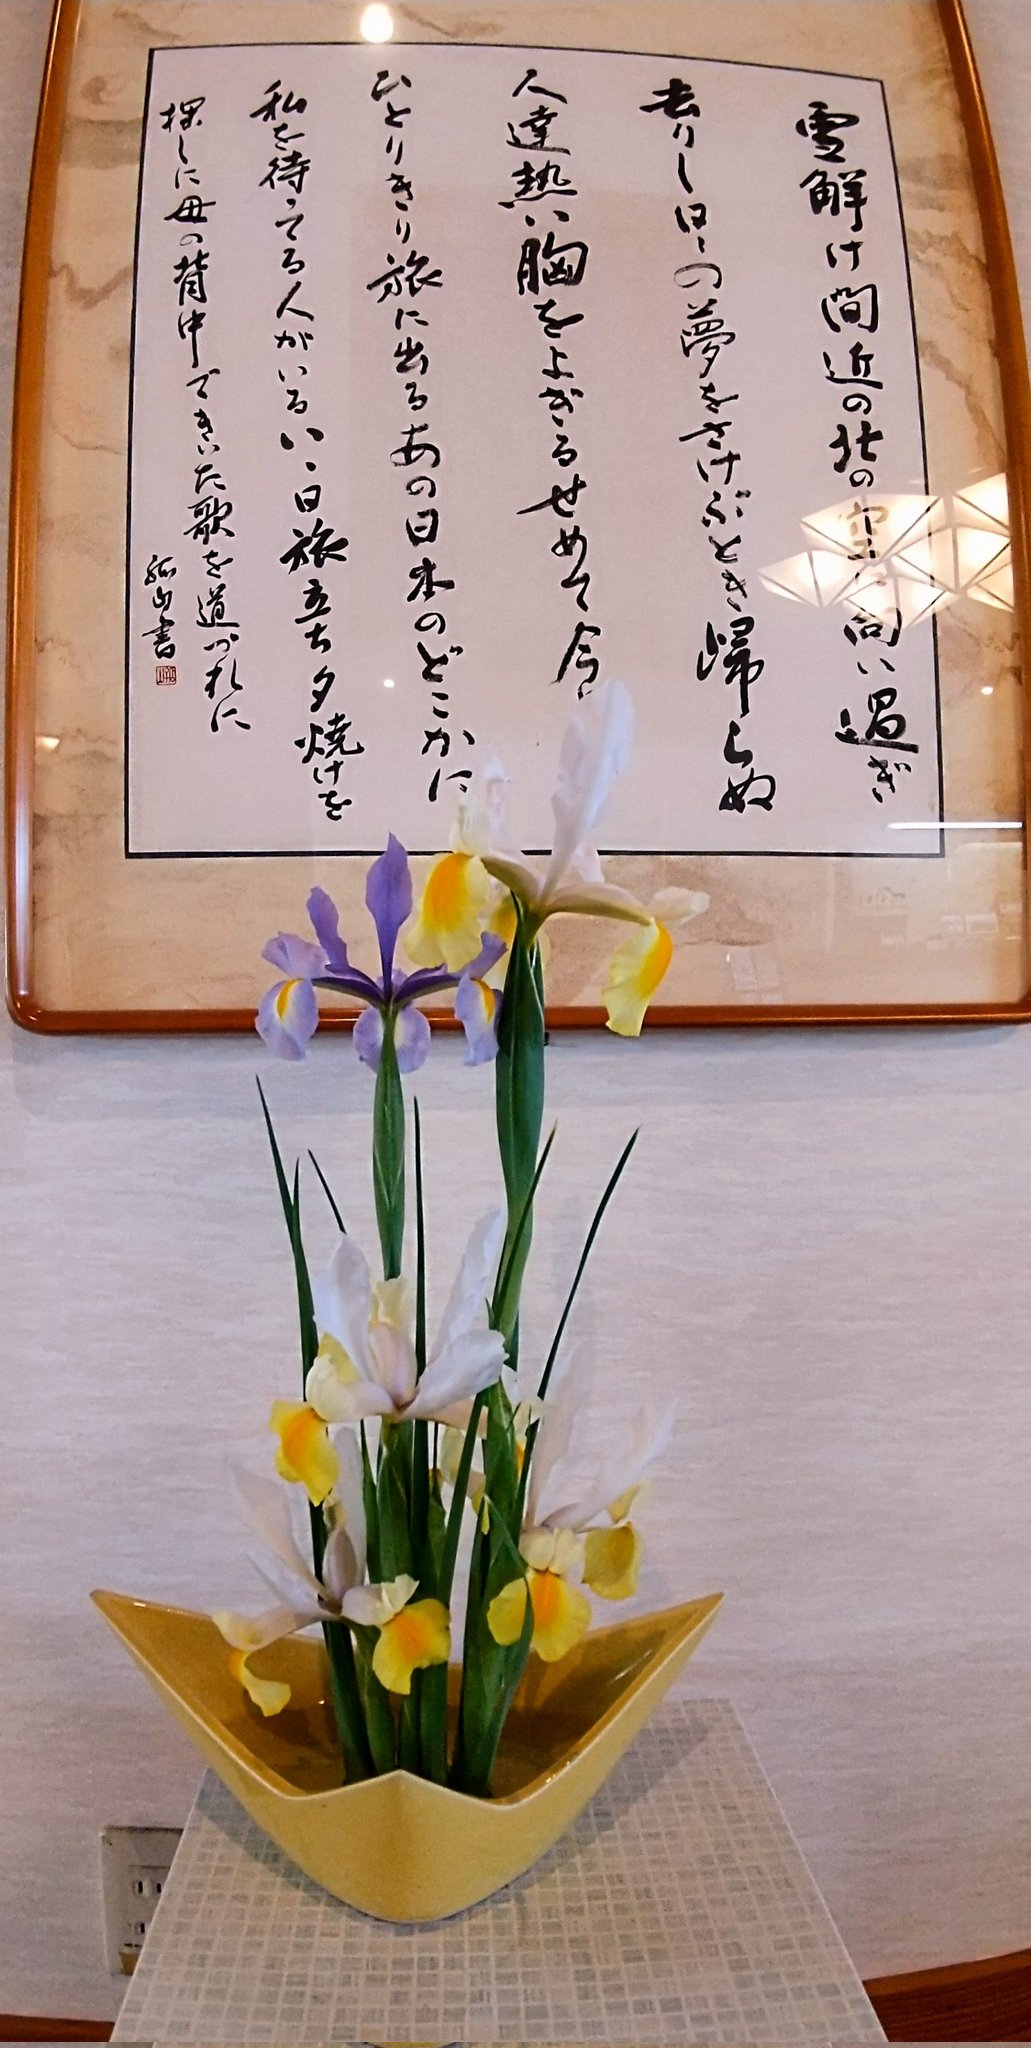 雪解け間近の北の空に向い過ぎ
去りし日々の夢をさけぶとき帰らぬ
人達熱い胸をよぎるせめて今
ひとりきり旅に出るあの日本のどこかに
私を待ってる人がいるいい日旅立ち夕焼けを
探しに母の背中できいた歌を道づれに
書